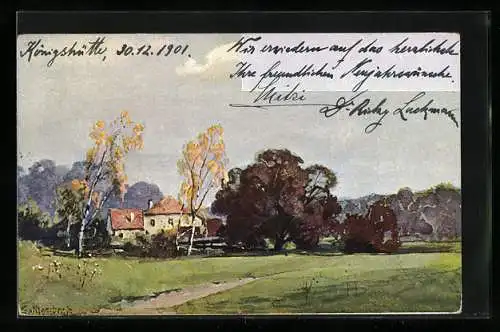 Königshütte, 30.12.1901.
Wir erwiedern auf das herzlichste
Ihre freundlichen Neujahrswünsche.
Mitzi Dr Lackmann